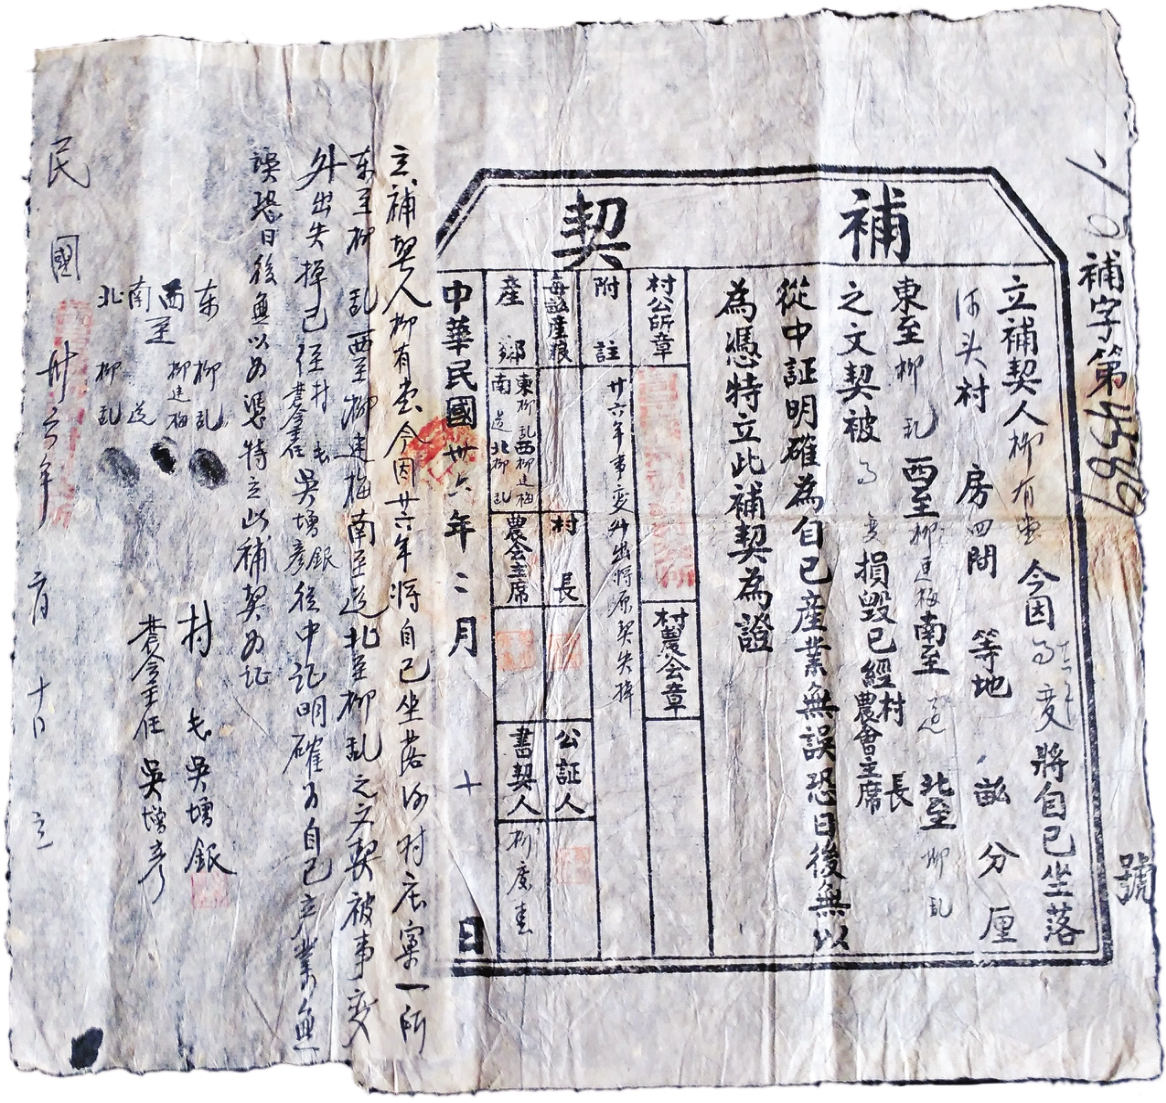 補字第 號
補契
立補契人柳有堂 今因 变 將自己坐落
河头村 房四間 等地 畝 分 厘
東至柳乱 西至柳建梅 南至道 北至柳乱
之文契被 损毀已經村長農會主席
從中証明確為自己產業無誤恐日後無以
為憑特立此補契為證
村公所章
村農会章
附註
卅六年事変外出将原契失掉
每畝產粮
村長
公証人
產鄰
東柳乱西柳建梅
南道北柳乱
農会主席
書契人
柳度春
中華民國卅六年二月十日
立補契人柳有堂今因卅六年将自己坐落河村庄窠一所
东至柳乱西至柳建梅南至道北至柳乱之文契被事変
外出失掉已经村长農会主任吴增银彦從中証明確为自己产業無
误恐日後無以为憑特立此補契为证
东柳乱
西至柳建梅
南道
北柳乱
村长吴增银
農会主任吴增彦
民國卅六年二月十日立